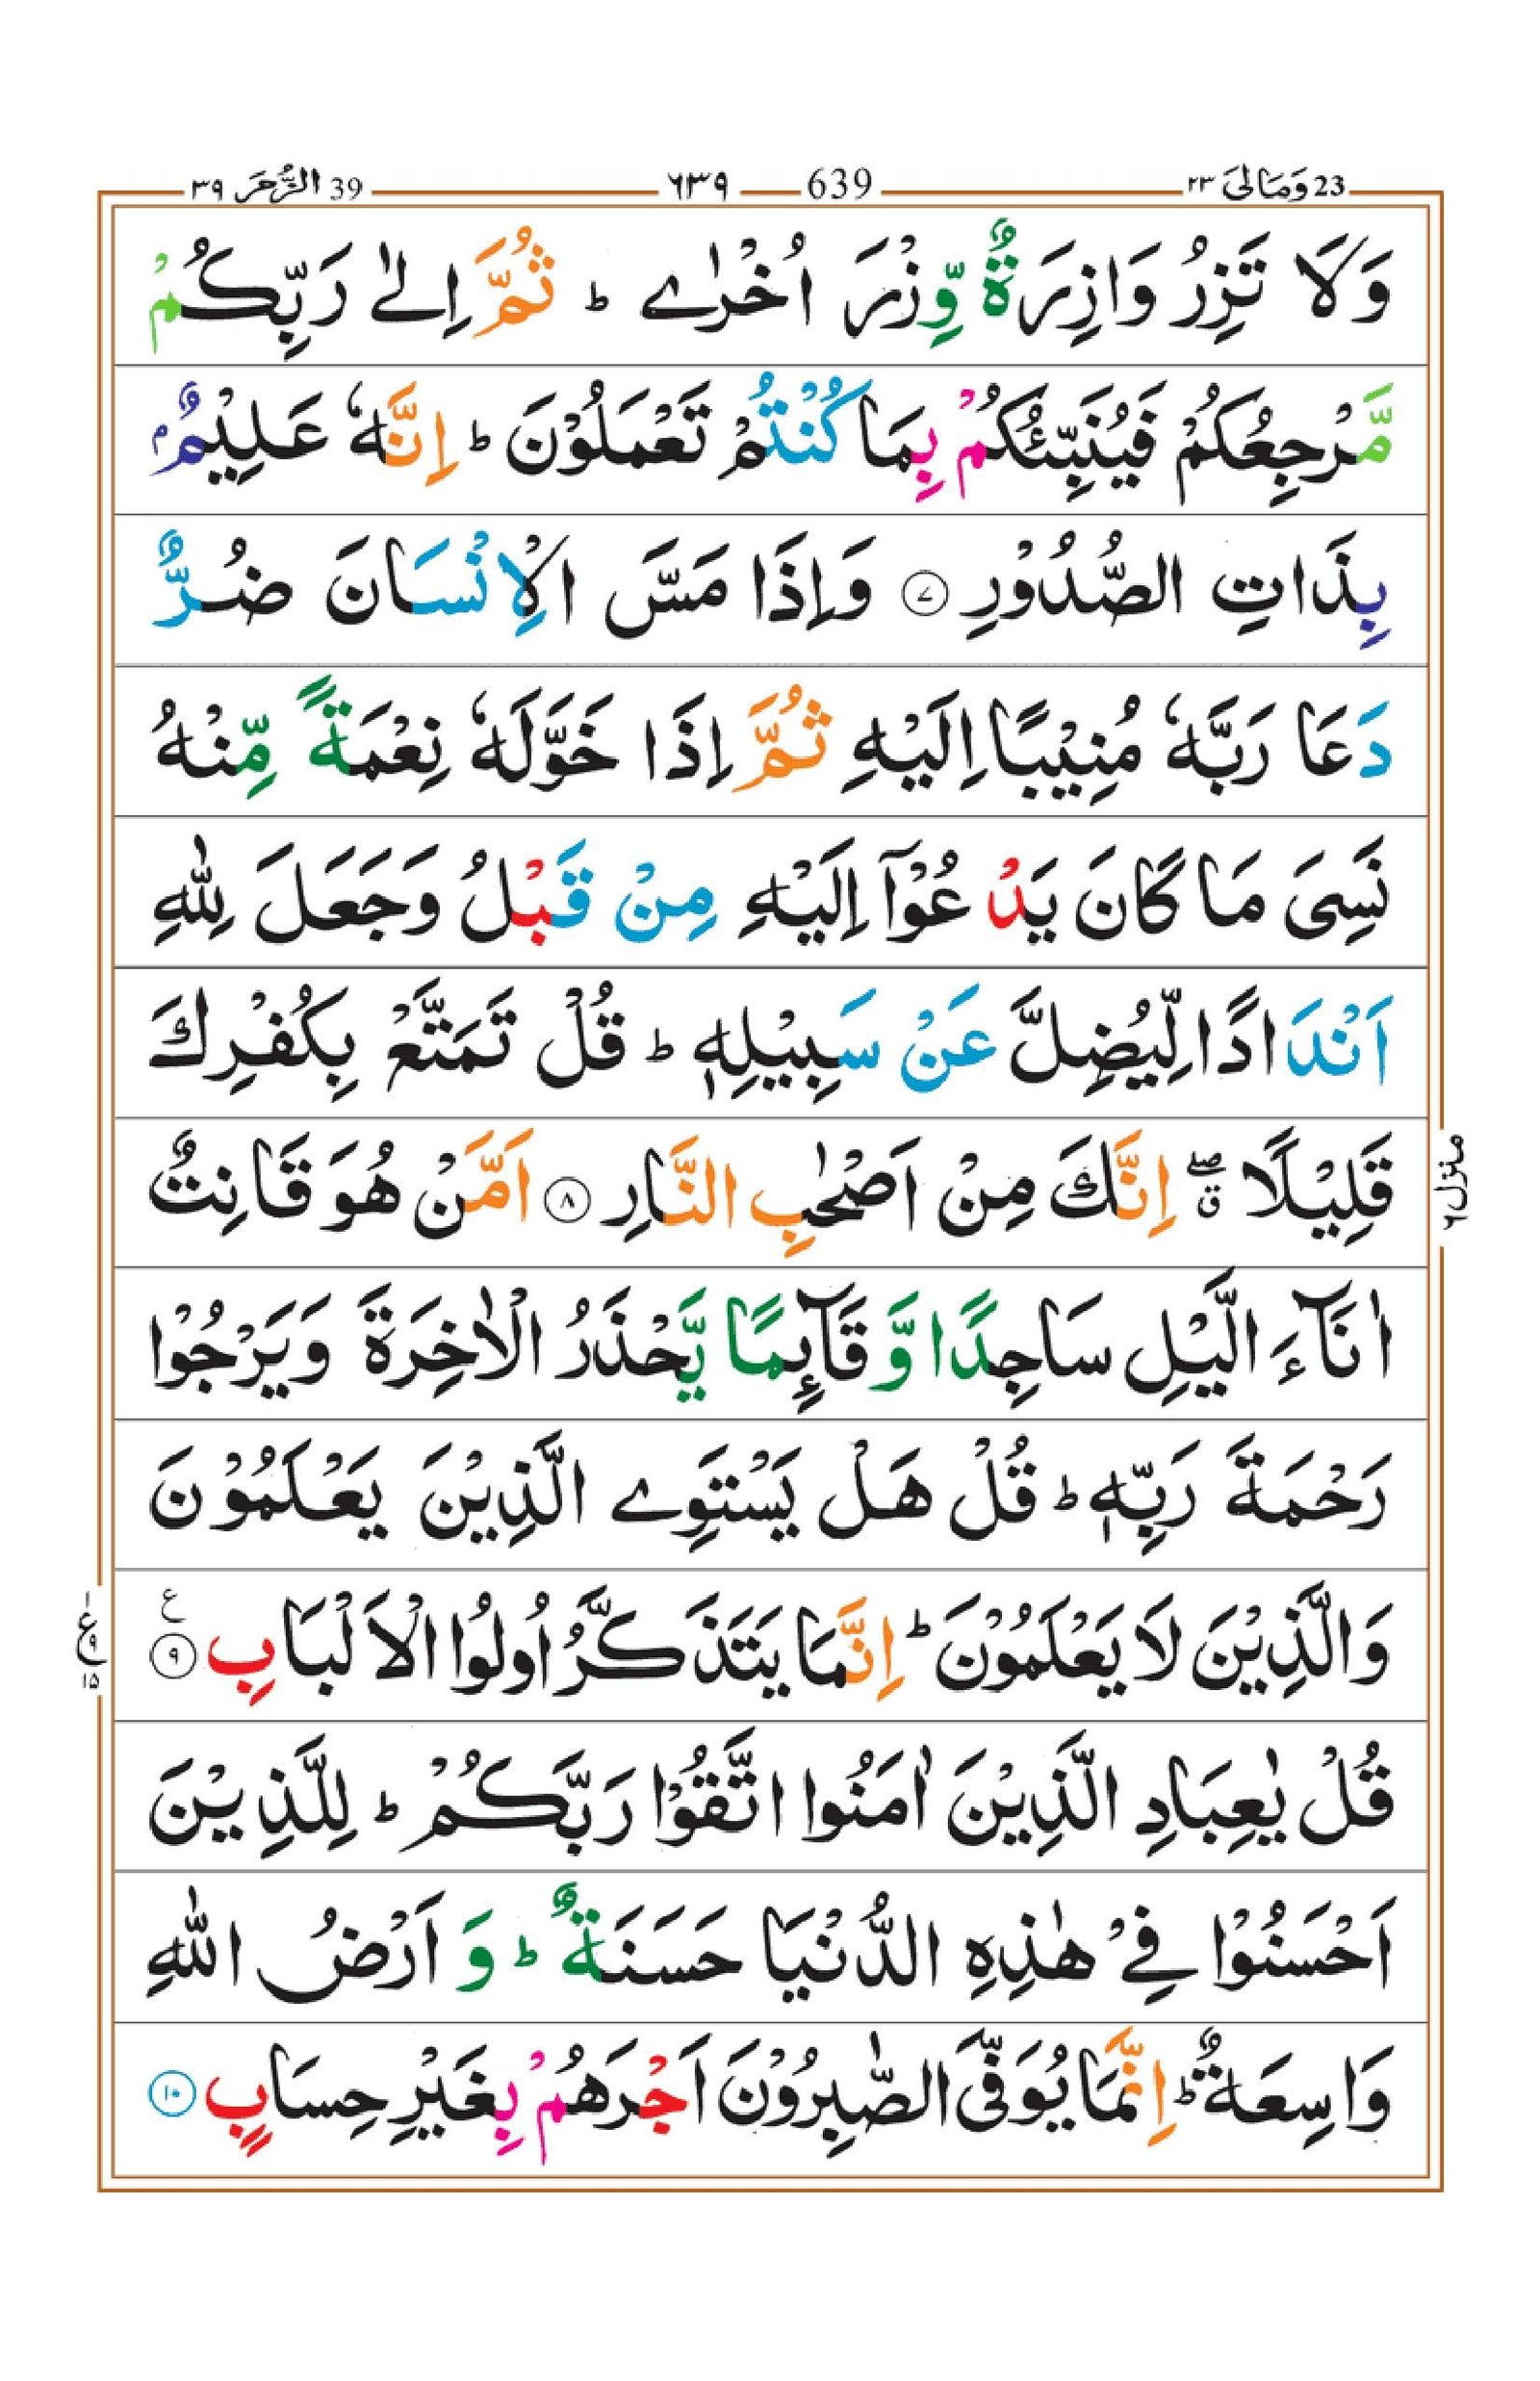 23 وَمَالِیَ ٢٣ 639 ٦٣٩ 39 الزُّمَر ٣٩
وَلَا تَزِرُ وَازِرَةٌ وِّزْرَ اُخْرٰے ؕ ثُمَّ اِلٰے رَبِّكُمْ
مَّرْجِعُكُمْ فَيُنَبِّئُكُمْ بِمَا كُنْتُمْ تَعْمَلُوْنَ ؕ اِنَّهٗ عَلِيْمٌۢ
بِذَاتِ الصُّدُوْرِ ۝٧ وَاِذَا مَسَّ الْاِنْسَانَ ضُرٌّ
دَعَا رَبَّهٗ مُنِيْبًا اِلَيْهِ ثُمَّ اِذَا خَوَّلَهٗ نِعْمَةً مِّنْهُ
نَسِیَ مَا كَانَ يَدْعُوْۤا اِلَيْهِ مِنْ قَبْلُ وَجَعَلَ لِلّٰهِ
اَنْدَادًا لِّيُضِلَّ عَنْ سَبِيْلِهٖ ؕ قُلْ تَمَتَّعْ بِكُفْرِكَ
قَلِيْلًا ۖۗ اِنَّكَ مِنْ اَصْحٰبِ النَّارِ ۝٨ اَمَّنْ هُوَ قَانِتٌ
اٰنَآءَ الَّيْلِ سَاجِدًا وَّقَآىِٕمًا يَّحْذَرُ الْاٰخِرَةَ وَيَرْجُوْا
رَحْمَةَ رَبِّهٖ ؕ قُلْ هَلْ يَسْتَوِے الَّذِيْنَ يَعْلَمُوْنَ
وَالَّذِيْنَ لَا يَعْلَمُوْنَ ؕ اِنَّمَا يَتَذَكَّرُ اُولُوا الْاَلْبَابِ ۝٩ ع
١ ع ٩ ١٥
قُلْ يٰعِبَادِ الَّذِيْنَ اٰمَنُوا اتَّقُوْا رَبَّكُمْ ؕ لِلَّذِيْنَ
اَحْسَنُوْا فِیْ هٰذِهِ الدُّنْيَا حَسَنَةٌ ؕ وَاَرْضُ اللّٰهِ
وَاسِعَةٌ ؕ اِنَّمَا يُوَفَّی الصّٰبِرُوْنَ اَجْرَهُمْ بِغَيْرِ حِسَابٍ ۝١٠
منزل ٦